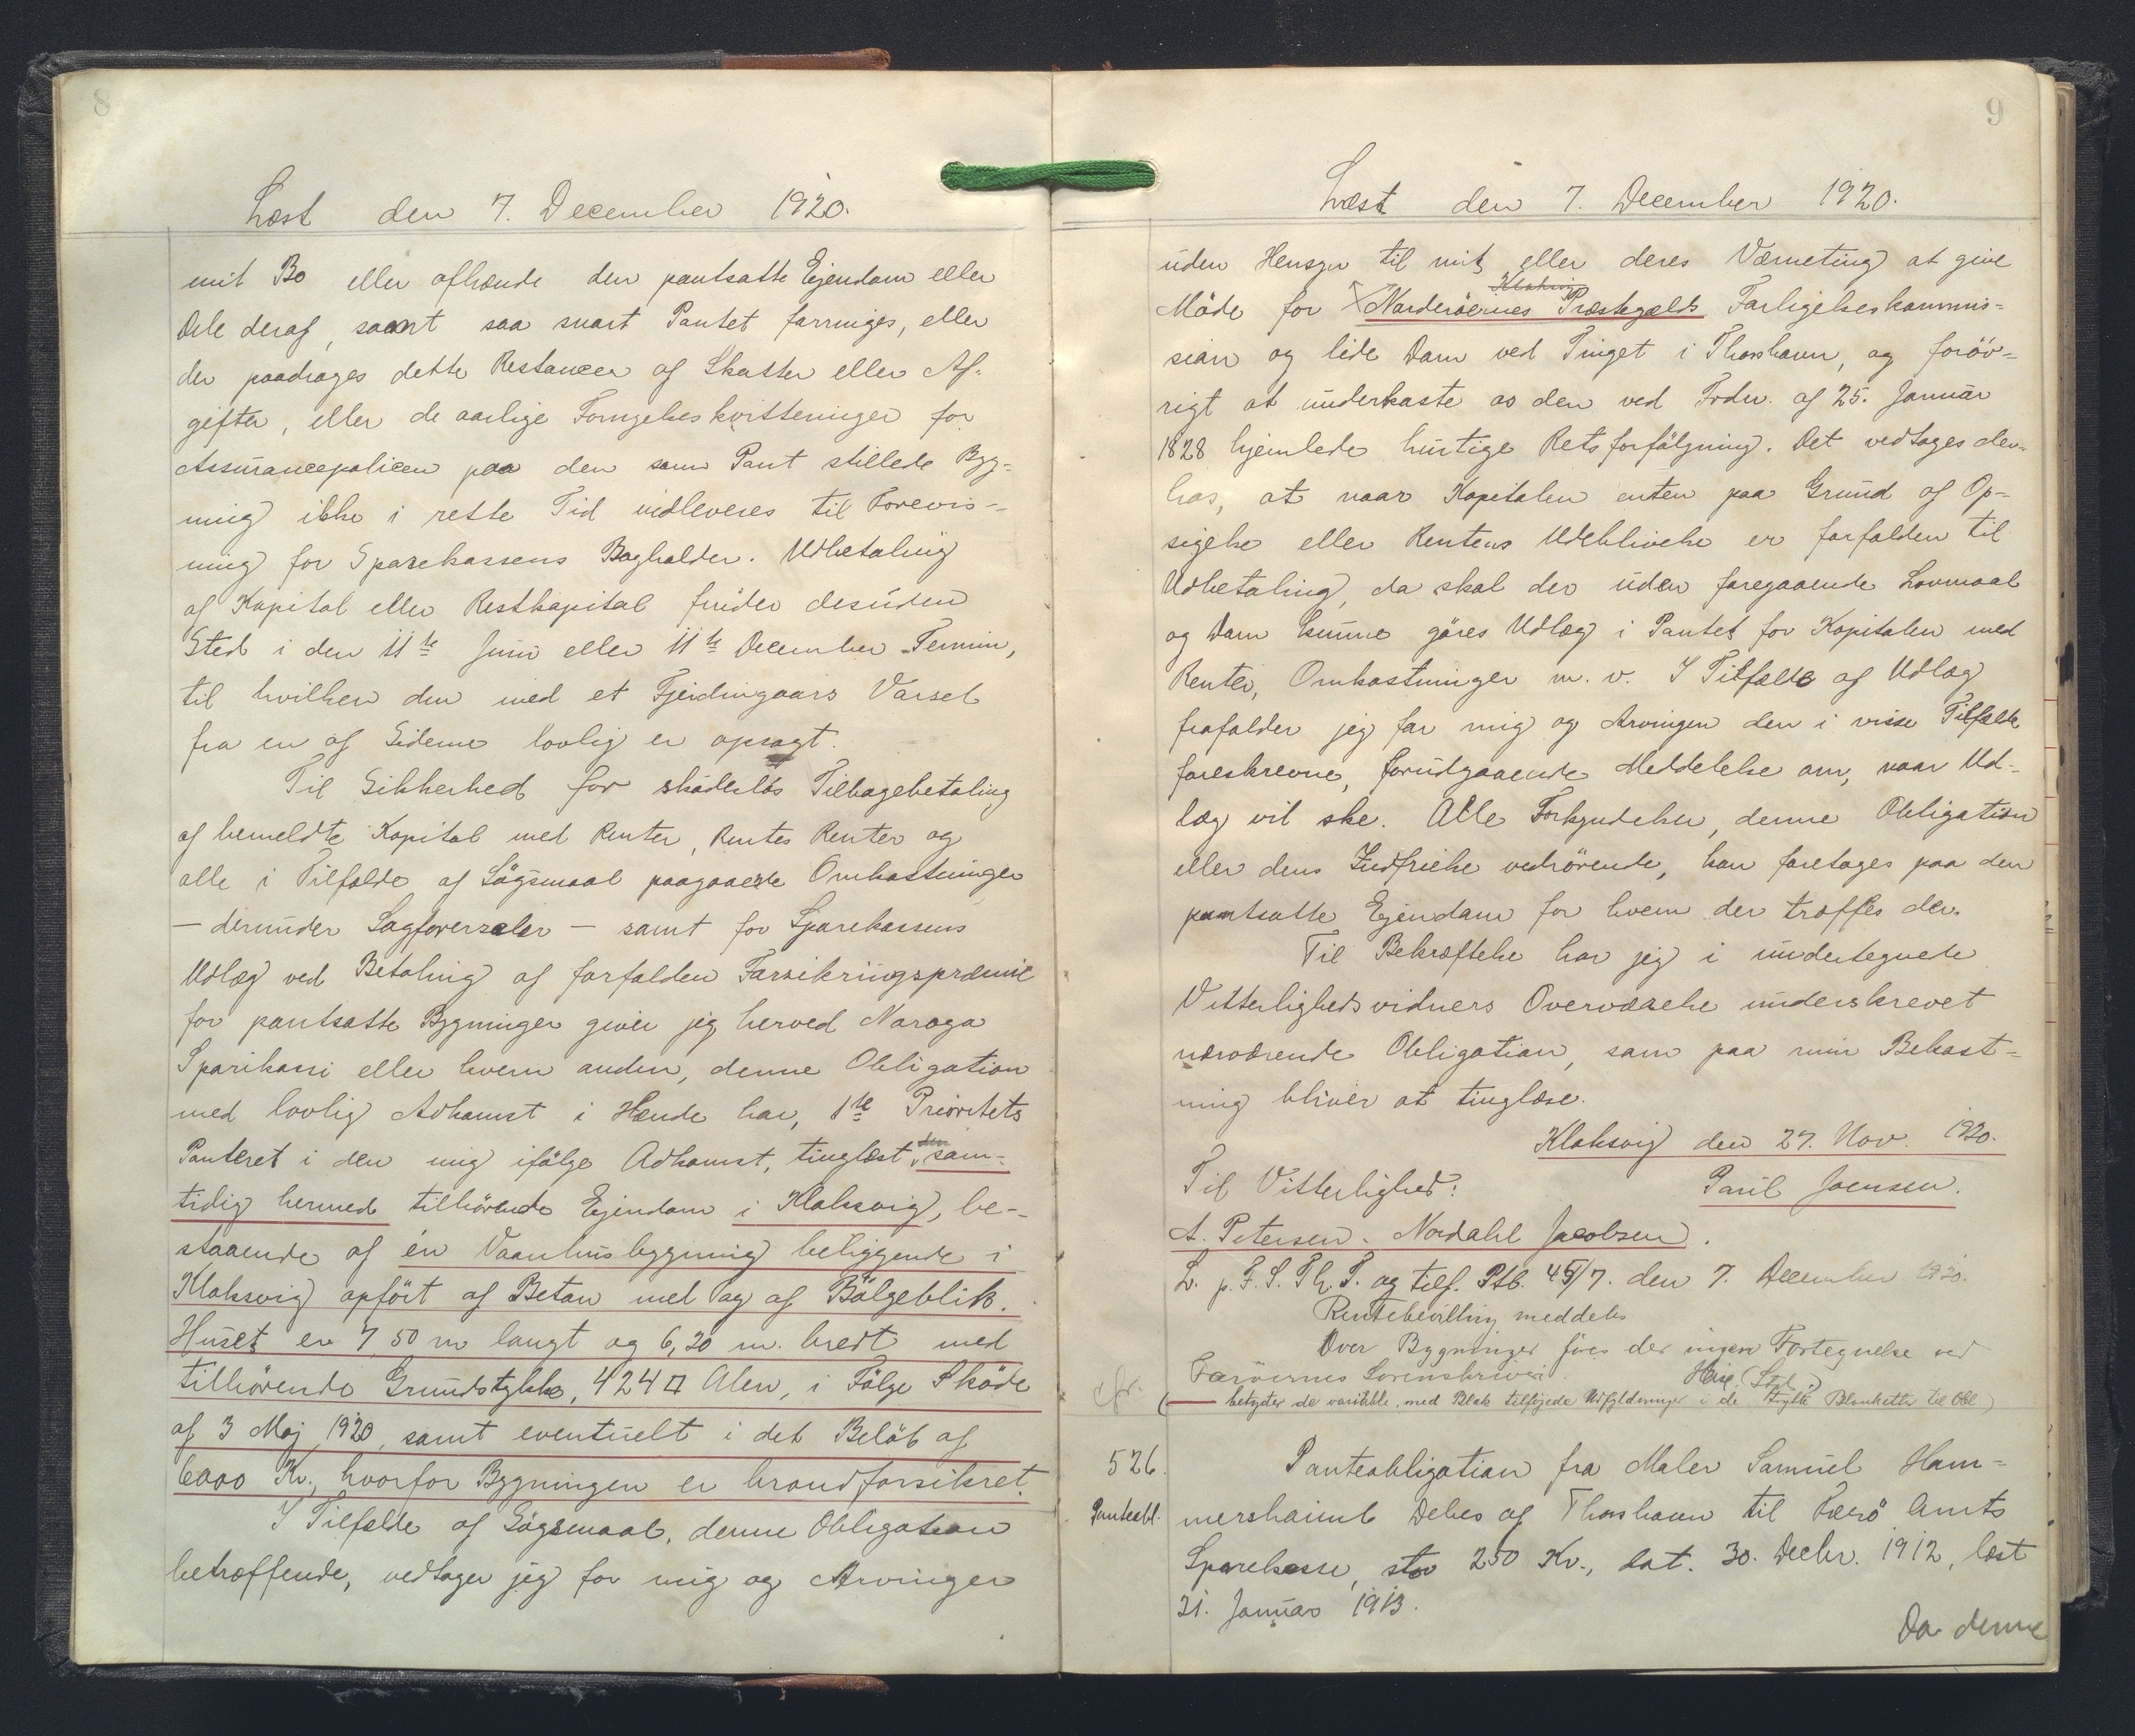 8
Læst den 7. December 1920.
mit Bo eller afhænde den pantsatte Ejendom eller
Dele deraf, samt saa snart Pantet forringes, eller
der paadrages dette Restancer af Skatter eller Af-
gifter, eller de aarlige Fornyelseskvitteringer for
Assurancepolicen paa den som Pant stillede Byg-
ning ikke i rette Tid indleveres til Forevis-
ning for Sparekassens Bogholder. Udbetaling
af Kapital eller Restkapital finder desuden
Sted i den 11te Juni eller 11te December Termin,
til hvilken den med et Fjerdingaars Varsel
fra en af Siderne lovlig er opsagt.
Til Sikkerhed for skadeslös Tilbagebetaling
af bemeldte Kapital med Renter, Rentes Renter og
alle i Tilfælde af Sögsmaal paagaaede Omkostninger
— derunder Sagförersalær — samt for Sparekassens
Udlæg ved Betaling af forfalden Forsikringspræmie
for pantsatte Bygninger giver jeg herved Noroya
Sparikassi eller hvem anden, denne Obligation
med lovlig Adkomst i Hænde har, 1te Prioritets
Panteret i den mig ifölge Adkomst, tinglæst den sam-
tidig hermed tilhörende Ejendom i Klaksvig, be-
staaende af én Vaanhusbygning beliggende i
Klaksvig opfört af Beton med Tag af Bölgeblik.
Huset er 7,50 m langt og 6,20 m. bredt med
tilhörende Grundstykke, 424 □ Alen, i Fölge Sköde
af 3 Maj 1920, samt eventuelt i det Belöb af
6000 Kr., hvorfor Bygningen er brandforsikret.
I Tilfælde af Sögsmaal, denne Obligation
betræffende, vedtager jeg for mig og Arvinger
9
Læst den 7. December 1920.
uden Hensyn til mit eller deres Værneting at give
Klaksvig
Möde for Norderöernes Præstegælds Forligelseskommis-
sion og lide Dom ved Tinget i Thorshavn, og foröv-
rigt at underkaste os den ved Frdn. af 25. Januar
1828 hjemlede hurtige Retsforfölgning. Det vedtages der-
hos, at naar Kapitalen enten paa Grund af Op-
sigelse eller Rentens Udeblivelse er forfalden til
Udbetaling, da skal der uden foregaaende Lovmaal
og Dom kunne göres Udlæg i Pantet for Kapitalen med
Renter, Omkostninger m. v. I Tilfælde af Udlæg
frafalder jeg for mig og Arvingen den i visse Tilfælde
foreskrevne, forudgaaende Meddelelse om, naar Ud-
læg vil ske. Alle Forkyndelser, denne Obligation
eller dens Indfrielse vedrörende, kan foretages paa den
pantsatte Ejendom for hvem der træffes der.
Til Bekræftelse har jeg i undertegnede
Vitterlighedsvidners Overværelse underskrevet
nærværende Obligation, som paa min Bekost-
ning bliver at tinglæse.
Klaksvig den 27. Nov. 1920.
Til Vitterlighed: Poul Joensen.
A. Petersen. Nordahl Jacobsen.
L. p. F. S. Th. T. og tilf. Ptb. den 7. December 1920.
Rentebevilling meddeles
Over Bygninger föres der ingen Fortegnelse ved
Færöernes Sorenskriveri.
cfr. (— betyder de variable, med Blæk tilföjede Udfyldninger i de trykte Blanketter til Obl.)
526. Panteobligation fra Maler Samuel Ham-
Panteobl. mershaimb Debes af Thorshavn til Færö Amts
Sparekasse, stor 250 Kr., dat. 30. Decbr. 1912, læst
31. Januar 1913.
Da denne